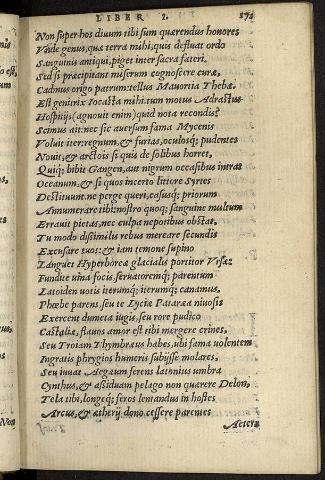 LIBER I. 171
Non super hos diuum tibi sum quærendus honores
Vnde genus, quæ terra mihi, quis defluat ordo
Sanguinis antiqui, piget inter sacra fateri.
Sed si præcipitant miserum cognoscere curæ,
Cadmus origo patrum: tellus Mauortia Thebæ.
Est genitrix Iocasta mihi. tum motus Adrastus
Hospitijs (agnouit enim) quid nota recondis?
Scimus ait: nec sic auersum fama Mycenis
Voluit iter: regnum, & furias, oculosq; pudentes
Nouit, & arctois si quis de solibus horret,
Quiq; bibit Gangen, aut nigrum occasibus intrat
Oceanum, & si quos incerto litiore Syrtes
Destituunt. ne perge queri, casusq; priorum
Annumerare tibi: nostro quoq; sanguine multum
Errauit pietas, nec culpa nepotibus obstat.
Tu modo dissimilis rebus mereare secundis
Excusare tuos: & iam temone supino
Languet Hyperboreæ glacialis portitor Vrsæ:
Fundite uina focis, seruatoremq; parentum
Latoiden uotis iterumq; iterumq; canamus.
Phœbe parens, seu te Lyciæ Pataræa niuosis
Exercent dumeta iugis, seu rore pudico
Castaliæ, flauos amor est tibi mergere crines,
Seu Troiam Thymbræus habes, ubi fama uolentem
Ingratis phrygios humeris subijsse molares,
Seu iuuat Aegæum feriens latonius umbra
Cynthus, & assiduam pelago non quærere Delon,
Tela tibi, longeq; feros lentandus in hostes
Arcus, & ætherij dono cessere parentes
Aeterna